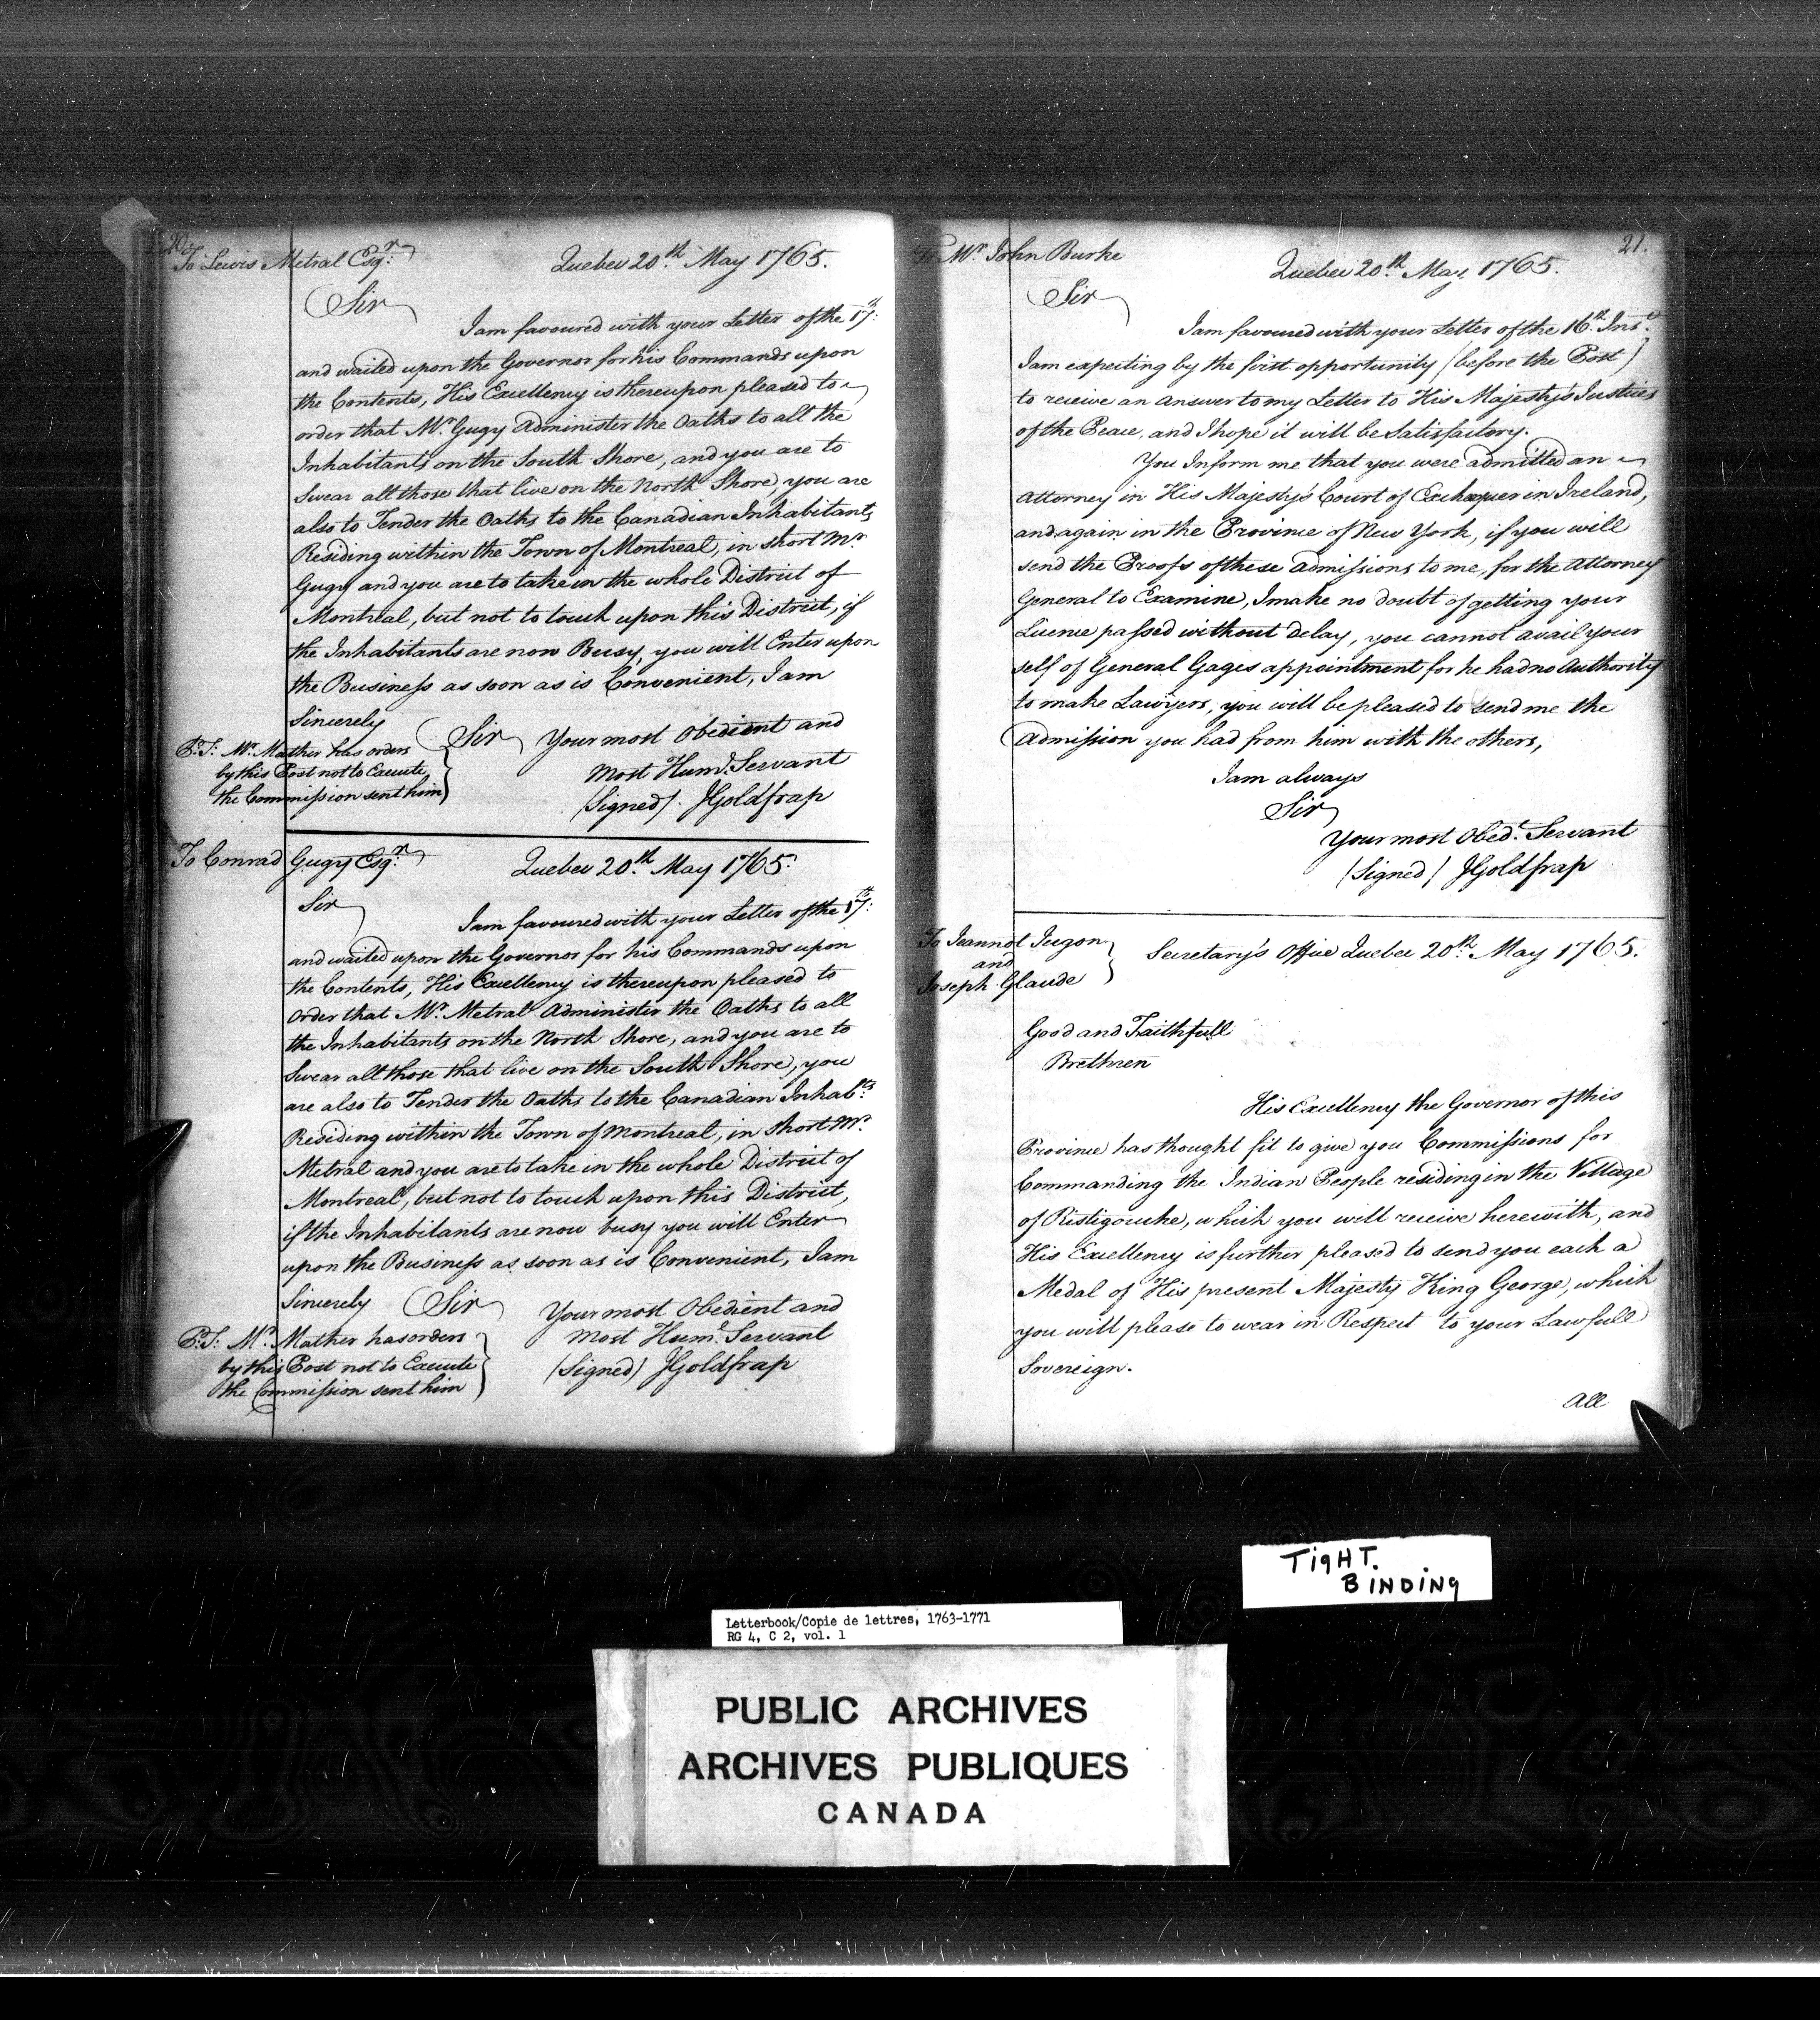 20.
To Lewis Metral Esqr.
Quebec 20th. May 1765.
Sir
I am favoured with your Letter of the 17th:
and waited upon the Governor for his Commands upon
the Contents, His Excellency is thereupon pleased to
order that Mr. Gugy Administer the Oaths to all the
Inhabitants on the South Shore, and you are to
Swear all those that live on the North Shore, you are
also to Tender the Oaths to the Canadian Inhabitants
Residing within the Town of Montreal, in short Mr.
Gugy and you are to take in the whole District of
Montreal, but not to touch upon this District, if
the Inhabitants are now Busy, you will Enter upon
the Business as soon as is Convenient, I am
Sincerely
Sir Your most Obedient and
most Hume. Servant
(Signed). JGoldfrap
P:S: Mr. Mather has orders
by this Post not to Execute
the Commission sent him
To Conrad Gugy Esqr.
Quebec 20th. May 1765:
Sir
I am favoured with your Letter of the 17th:
and waited upon the Governor for his Commands upon
the Contents, His Excellency is thereupon pleased to
order that Mr. Metral Administer the Oaths to all
the Inhabitants on the North Shore, and you are to
Swear all those that live on the South Shore, you
are also to Tender the Oaths to the Canadian Inhabts:
Residing within the Town of Montreal, in short Mr.
Metral and you are to take in the whole District of
Montreal, but not to touch upon this District,
if the Inhabitants are now busy you will Enter
upon the Business as soon as is Convenient, I am
Sincerely Sir Your most Obedient and
most Hume. Servant
(Signed) JGoldfrap
P:S: Mr. Mather has orders
by this Post not to Execute
the Commission sent him
21.
To Mr. John Burke
Quebec 20th. May 1765.
Sir
I am favoured with your Letter of the 16th. Inst.
I am expecting by the first opportunity (before the Post)
to receive an answer to my Letter to His Majesty's Justices
of the Peace, and I hope it will be Satisfactory.
You Inform me that you were admitted an
Attorney in His Majesty's Court of Exchequer in Ireland,
and again in the Province of New York, if you will
send the Proofs of these admissions to me, for the Attorney
General to Examine, I make no doubt of getting your
Licence passed without delay, you cannot avail your
self of General Gages appointment for he had no Authority
to make Lawyers, you will be pleased to send me the
Admission you had from him with the others,
I am always
Sir
Your most Obedt. Servant
(Signed) JGoldfrap
To Jeannot Jugon
and
Joseph Glaude
Secretary's Office Quebec 20th. May 1765.
Good and Faithfull
Brethren
His Excellency the Governor of this
Province has thought fit to give you Commissions for
Commanding the Indian People residing in the Village
of Ristigouche, which you will receive herewith, and
His Excellency is further pleased to send you each a
Medal of His present Majesty King George, which
you will please to wear in Respect to your Lawfull
Sovereign.
All
TIGHT.
BINDING
Letterbook/Copie de lettres, 1763-1771
RG 4, C 2, vol. 1
PUBLIC ARCHIVES
ARCHIVES PUBLIQUES
CANADA